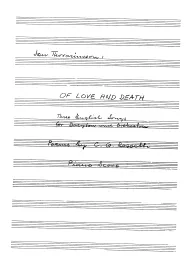 Jón Thorarinsson:
OF LOVE AND DEATH
Three English Songs
for Baryton and Orchestra
Poems by C. G. Rossetti
Piano Score